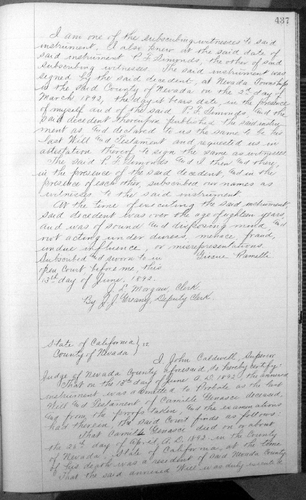 437
I am one of the subscribing witnesses to said
instrument, I also knew at the said date of
said instrument P. F. Simonds, the other of said
subscribing witnesses. The said instrument was
signed by the said decedent, at Nevada Township
in the said County of Nevada on the 3rd day of
March 1893, the day it bears date, in the presence
of myself and of the said P. F. Simonds, and the
said decedent thereupon published the said instru-
ment as and declared to us the same to be his
Last Will and Testament and requested us in
attestation thereof to sign the same as witnesses.
The said P. F. Simonds and I then and there,
in the presence of the said decedent, and in the
presence of each other, subscribed our names as
witnesses to the said instrument.
At the time of executing the said instrument,
said decedent was over the age of eighteen years,
and was of sound and disposing mind, and
not acting under duress, menace, fraud,
undue influence, or misrepresentations.
Subscribed and sworn to in
open Court before me, this
13th day of June, 1893.
Clerk
By J. J. Greany, Deputy Clerk.
State of California
County of Nevada } ss
I, John Caldwell, Superior
Judge of Nevada County aforesaid, do hereby certify:
That on the 13th day of June A.D. 1893, the annexed
instrument was admitted to Probate as the Last
Will and Testament of Camille deceased,
and from the proofs taken, and the examinations
had therein, the said Court finds as follows
That Camille deceased died on or about
the day of April A.D. 1893 in the County
of Nevada, State of California, at the time
of his death was a resident of said Nevada County
That the said annexed Will was duly executed